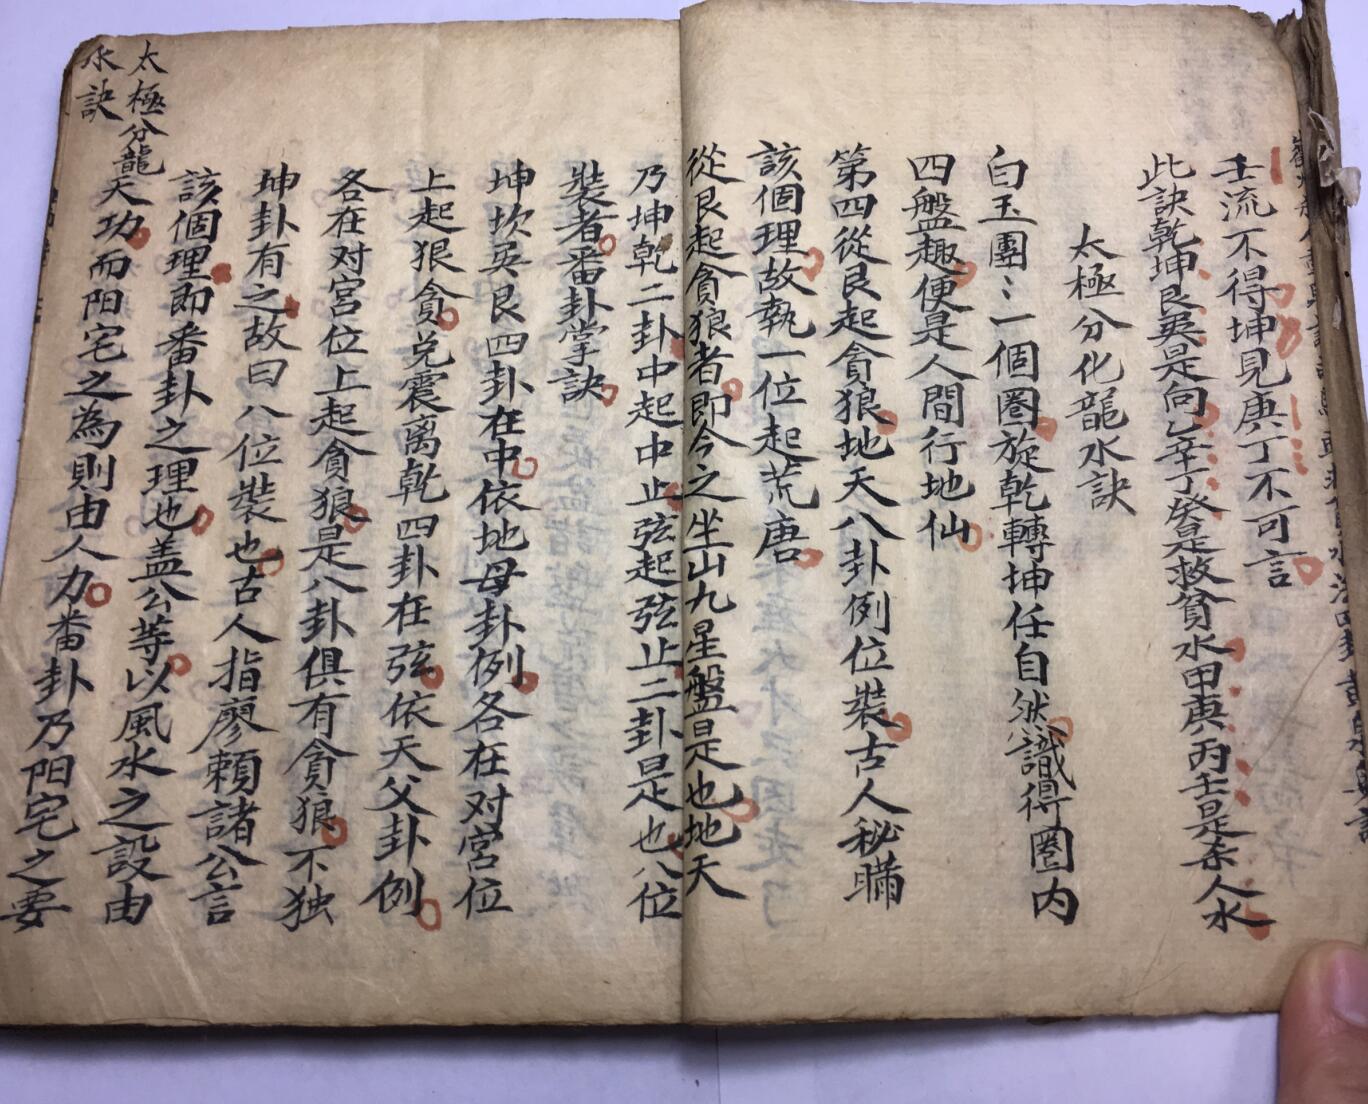 壬流不得坤見庚丁不可言
此訣乾坤艮巽是向乙辛丁癸是救貧水甲庚丙壬是杀人水
太極分化龍水訣
白玉團〻一個圈旋乾轉坤任自然識得圈内
四盤趣便是人間行地仙
第四從艮起貪狼地天八卦例位裝古人秘瞞
該個理故執一位起荒唐
從艮起貪狼者即今之坐山九星盤是也地天
乃坤乾二卦中起中止弦起弦止二卦是也八位
裝者番卦掌訣
坤坎巽艮四卦在中依地母卦例各在对宮位
上起狠貪兑震离乾四卦在弦依天父卦例
各在对宮位上起貪狼是八卦俱有貪狼不独
坤卦有之故曰八位裝也古人指廖賴諸公言
該個理即番卦之理也盖公等以風水之設由
天功而阳宅之為則由人力番卦乃阳宅之要
太極分龍
水訣